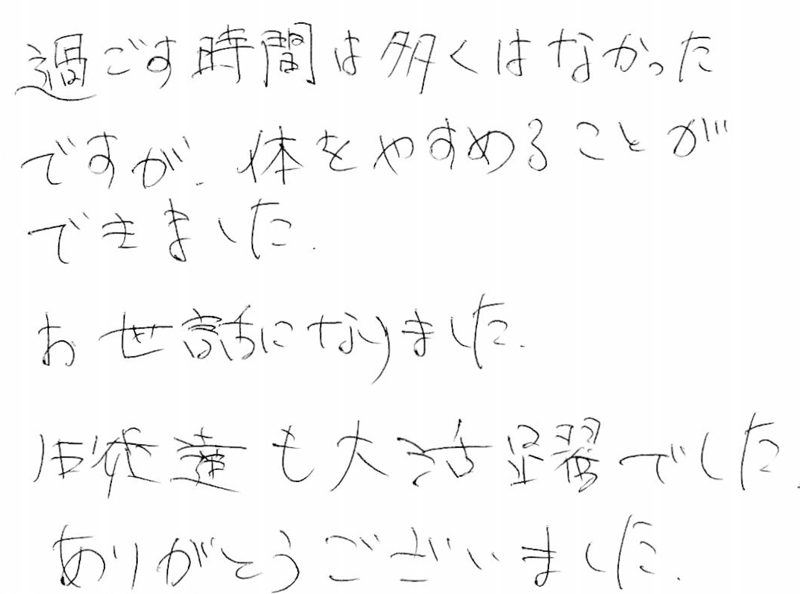 過ごす時間は多くはなかった
ですが、体をやすめることが
できました.
お世話になりました.
達も大活躍でした.
ありがとうございました.